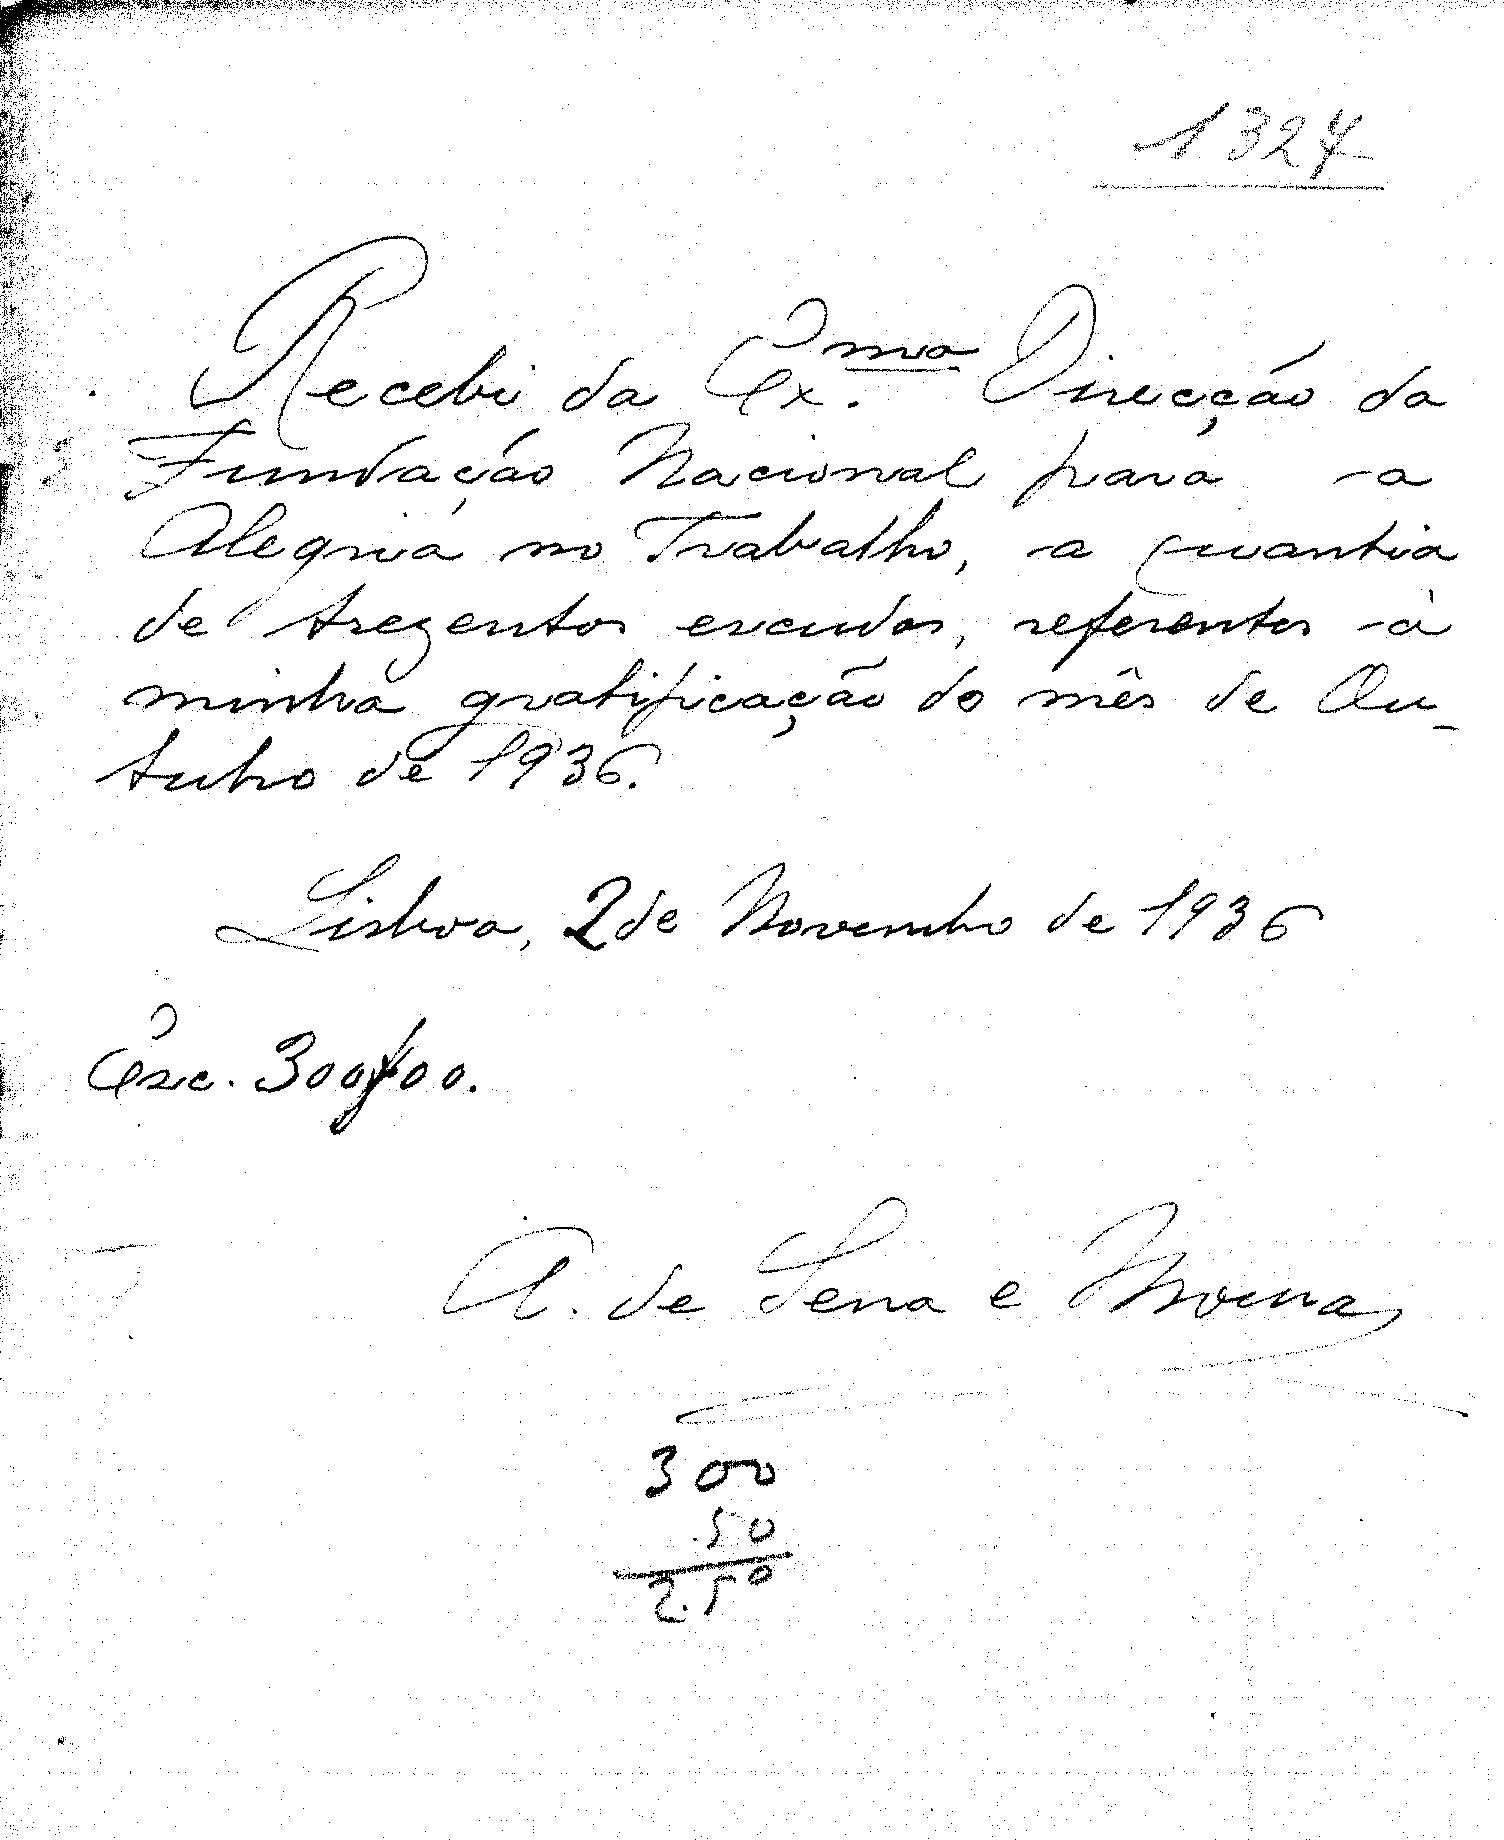 1324
Recebi da Ex.ma Direcção da
Fundação Nacional para a
Alegria no Trabalho, a quantia
de trezentos escudos, referentes à
minha gratificação do mês de Ou-
tubro de 1936.
Lisboa, 2 de Novembro de 1936
Esc. 300$00.
A. de Sena e Moura
300
50
250